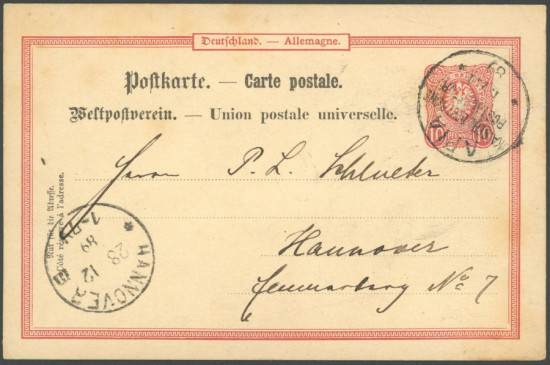 Deutschland. — Allemagne.
Postkarte. — Carte postale.
Weltpostverein. — Union postale universelle.
10
Herrn P. L. Schlueter
Hannover
No 7
Nur für die Adresse.
Côté réservé à l'adresse.
HANNOVER
23
12
89